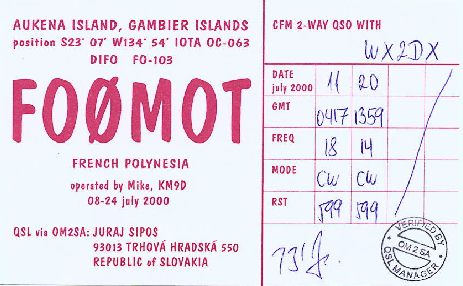 AUKENA ISLAND, GAMBIER ISLANDS
position S23° 07' W134° 54' IOTA OC-063
DIFO FO-103
FOØMOT
FRENCH POLYNESIA
operated by Mike, KM9D
08-24 july 2000
QSL via OM2SA: JURAJ SIPOS
93013 TRHOVÁ HRADSKÁ 550
REPUBLIC of SLOVAKIA
CFM 2-WAY QSO WITH
WX2DX
DATE july 2000 11 20
GMT 0417 1359
FREQ 18 14
MODE CW CW
RST 599 599
73!
VERIFIED BY
OM2SA
QSL MANAGER